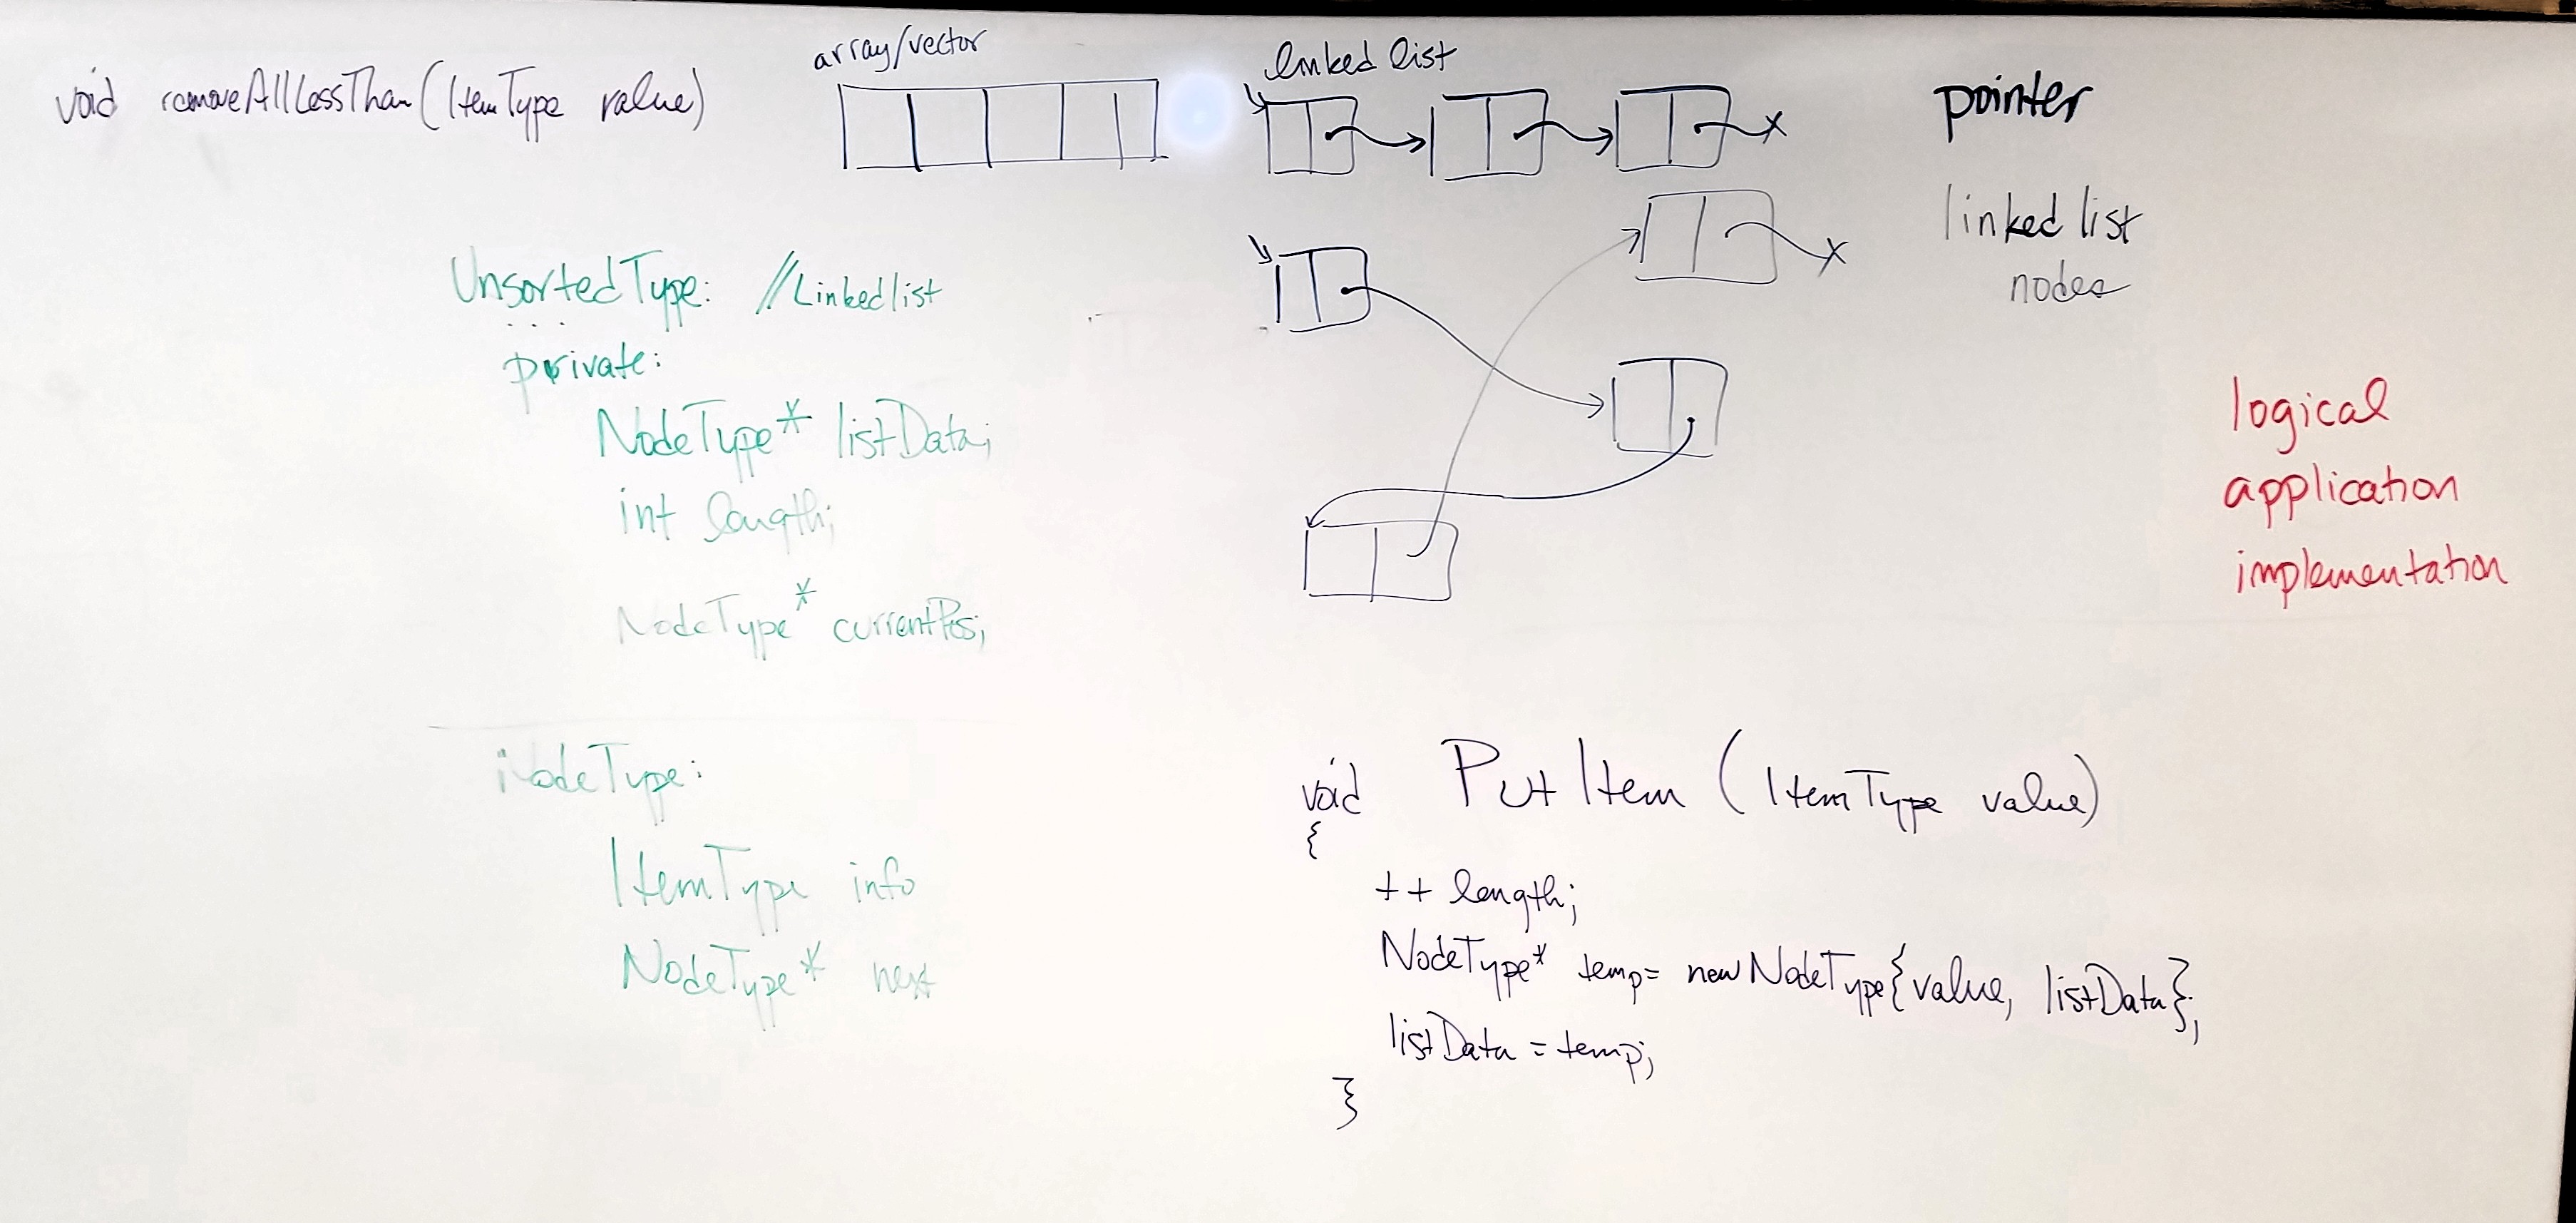 void removeAllLessThan(ItemType value)
array/vector
linked list
pointer
linked list
nodes
logical
application
implementation
UnsortedType: //Linkedlist
...
private:
NodeType* listData;
int length;
NodeType* currentPos;
NodeType:
ItemType info
NodeType* next
void PutItem (ItemType value)
{
++ length;
NodeType* temp= new NodeType{value, listData};
listData = temp;
}